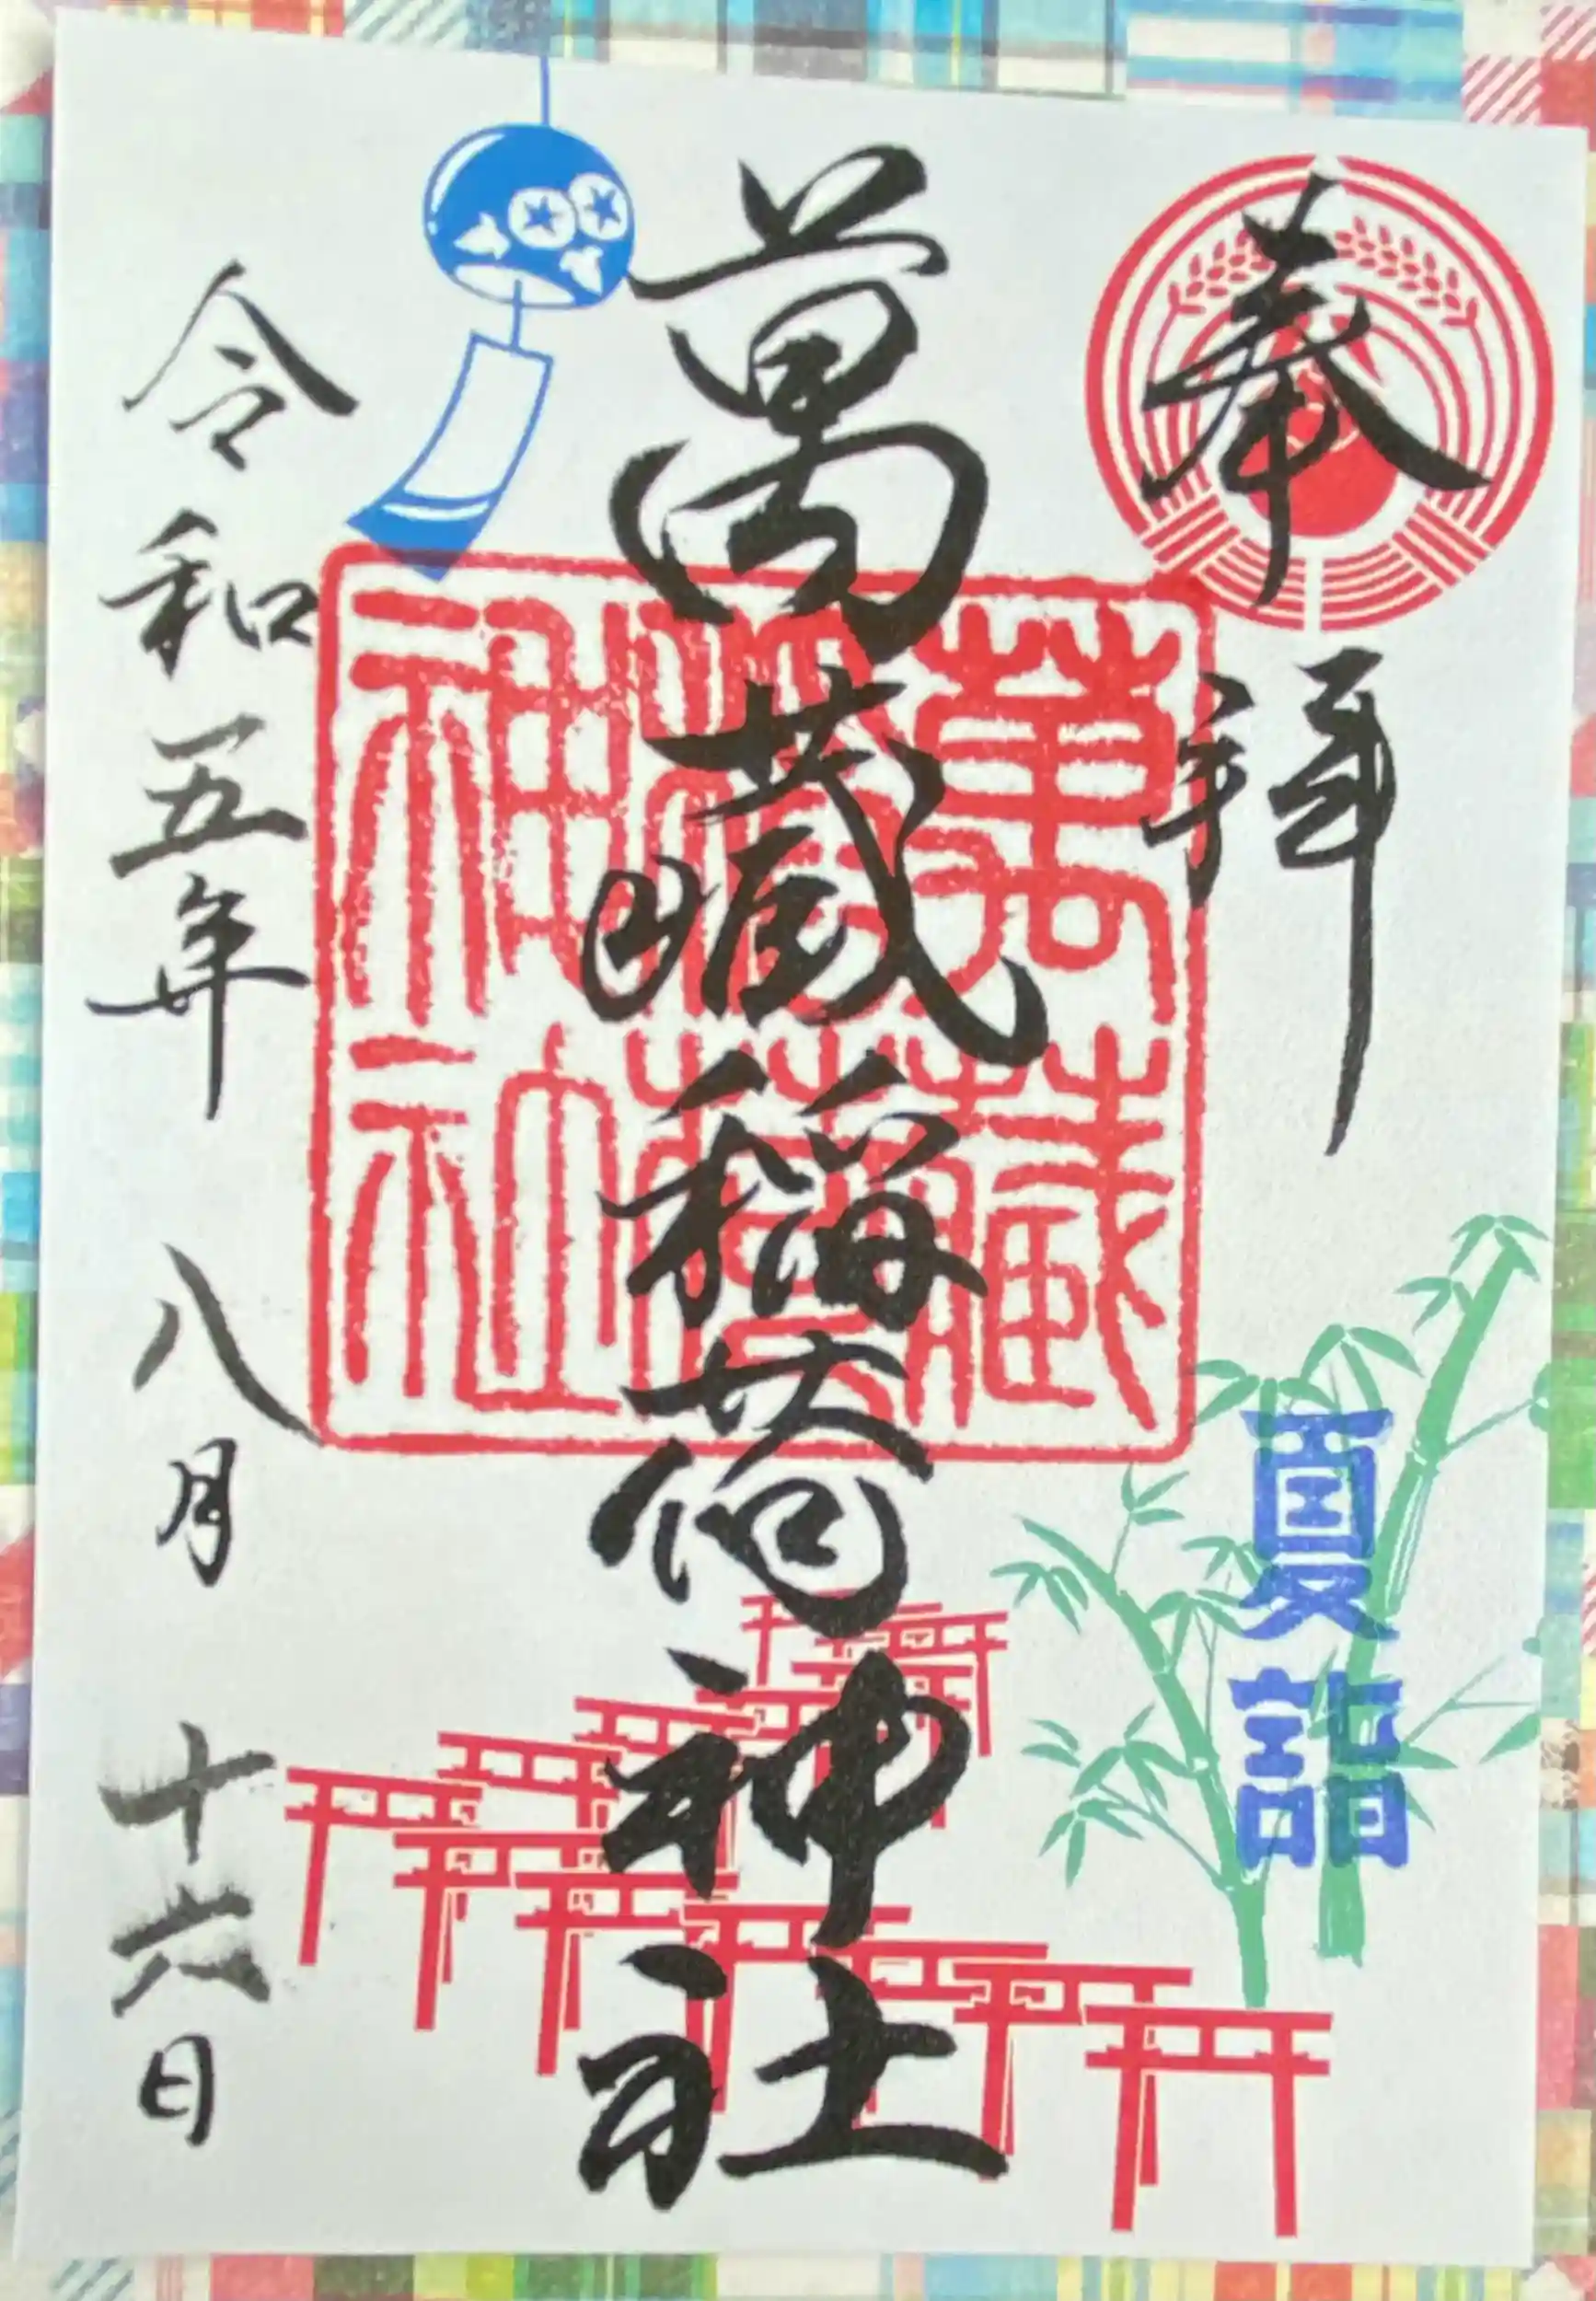 奉拝
夏詣
萬藏稲荷神社
萬藏
稲荷
神社
令和五年 八月 十六日